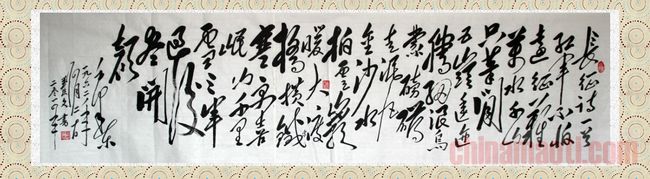 长征诗一首
红军不怕
远征难
万水千山
只等闲
五岭逶迤
腾细浪乌
蒙磅礴
走泥丸
金沙水
拍云崖
暖大渡
桥横铁
索寒更喜
岷山千里
雪三军
过后
尽开
颜
chinamaoti.com